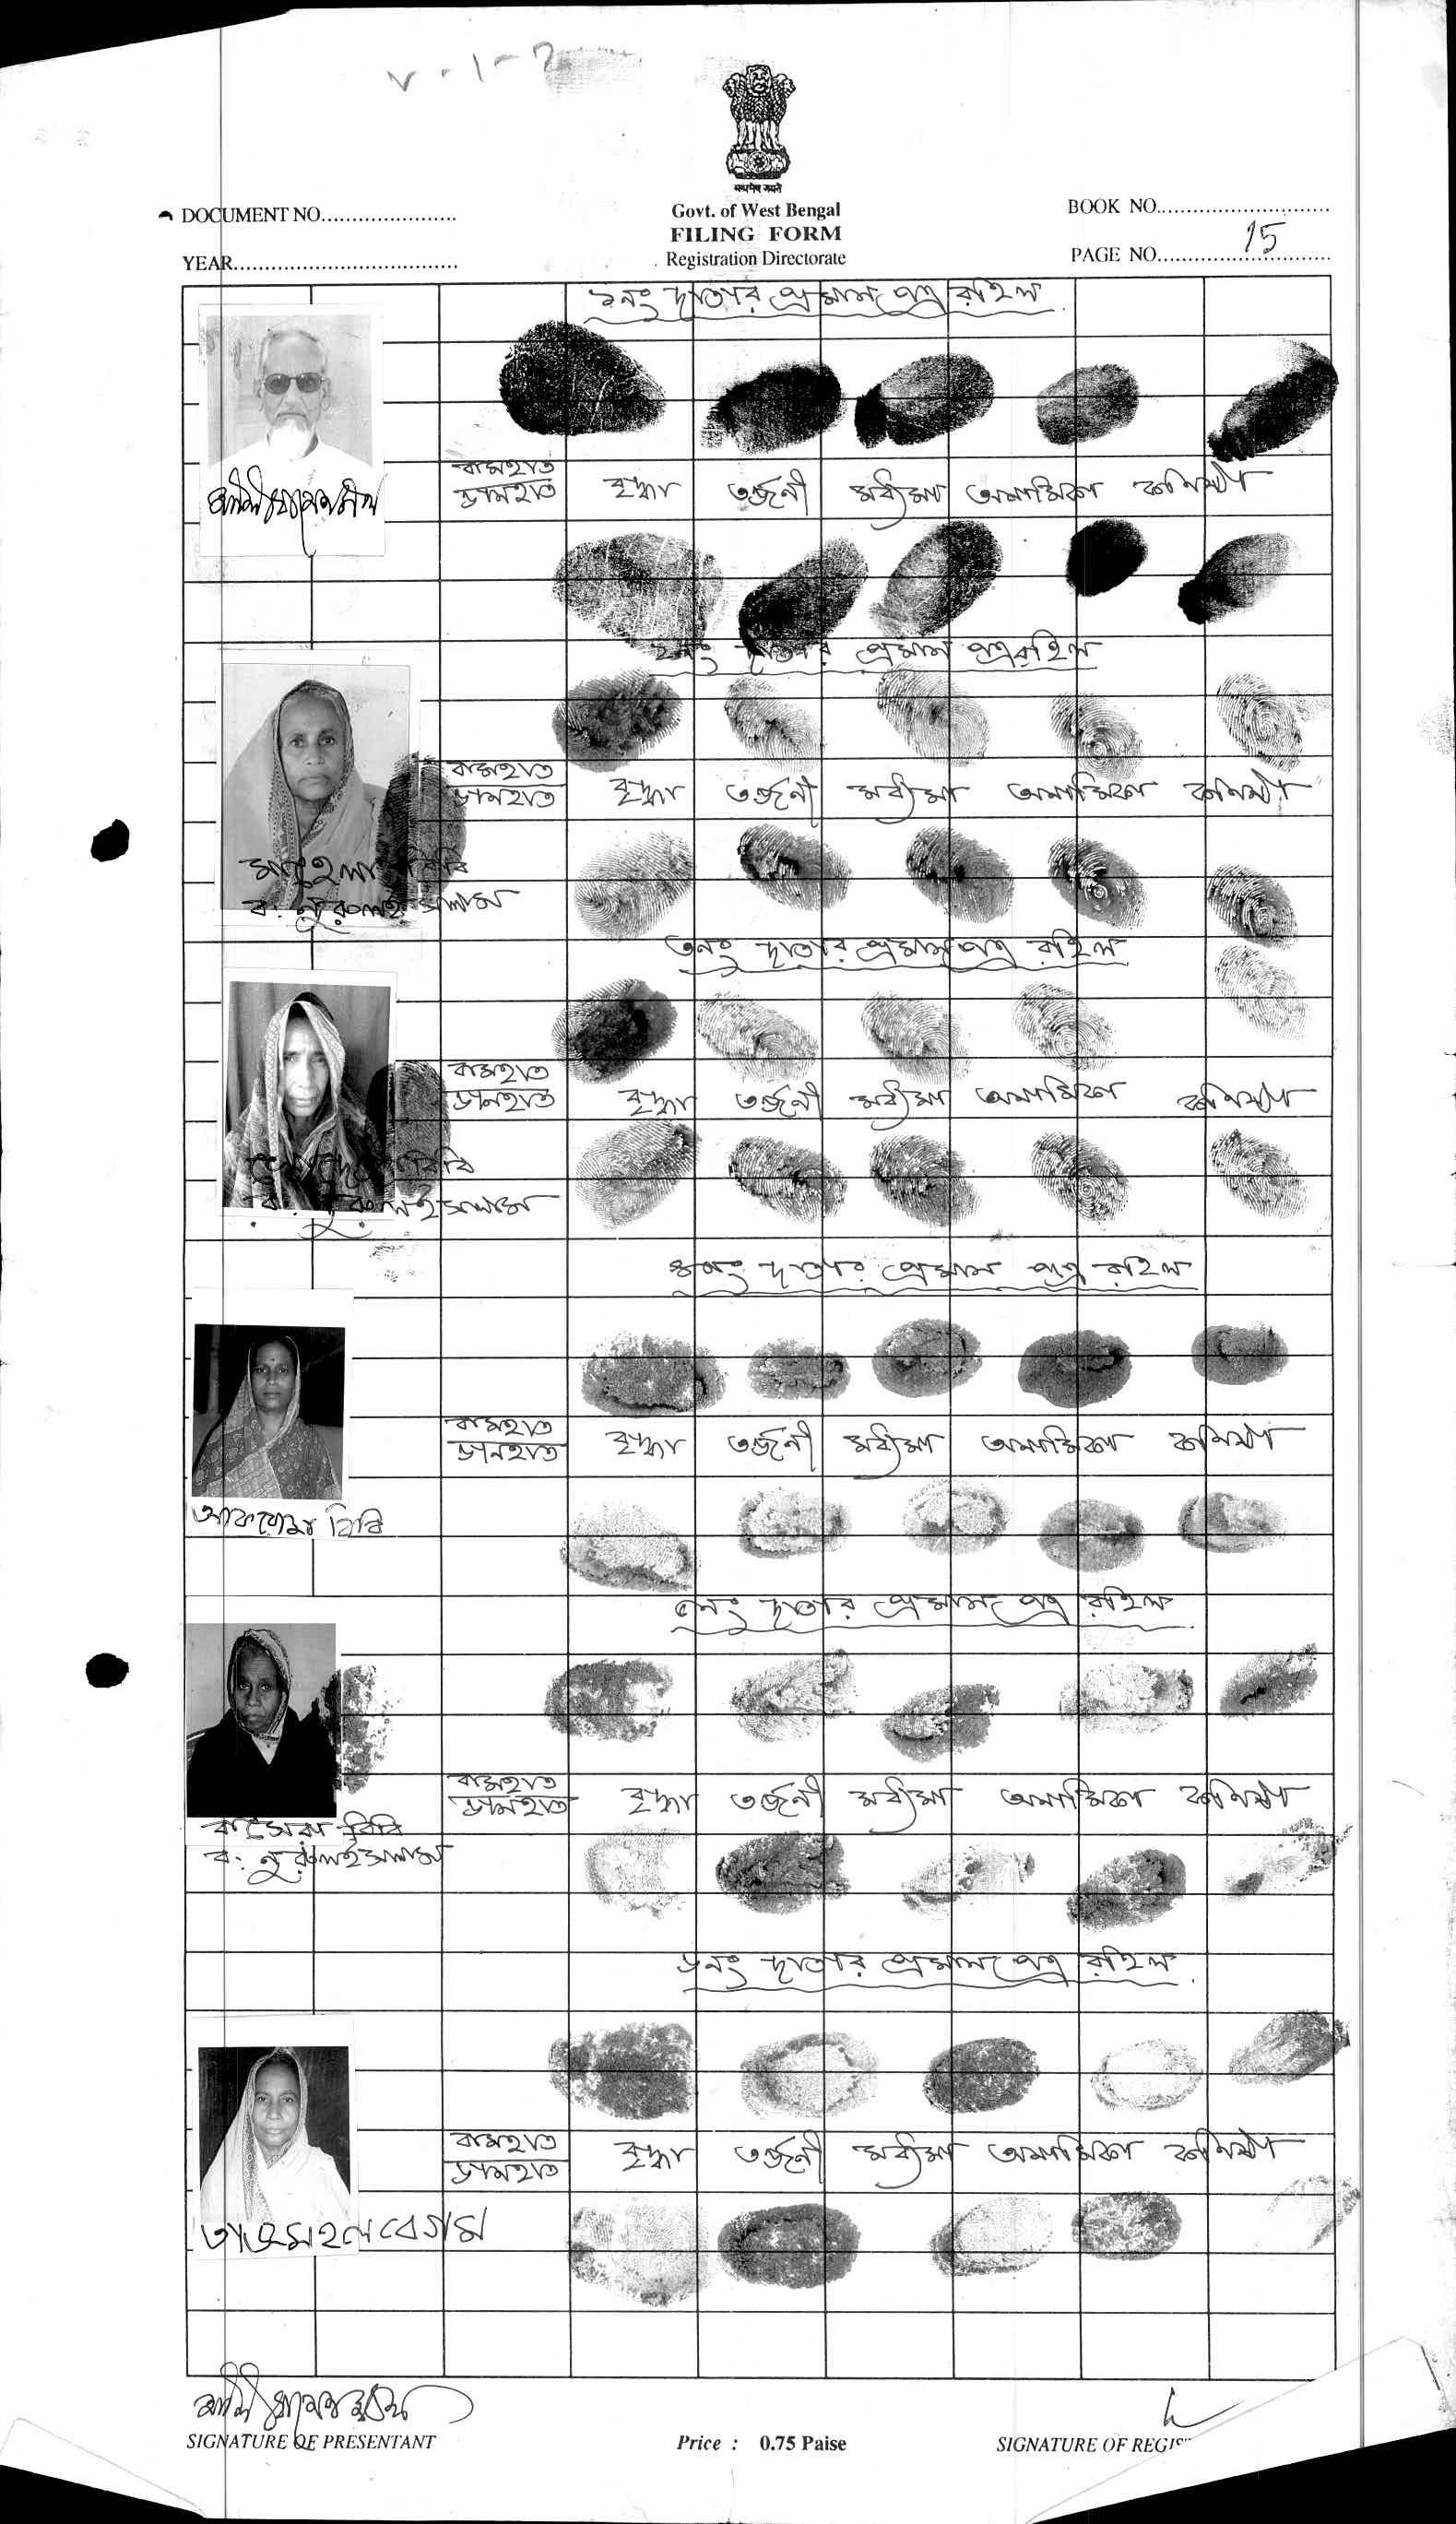 v - 1 - 2
सत्यमेव जयते
DOCUMENT NO......................
Govt. of West Bengal
BOOK NO............................
FILING FORM
YEAR.....................................
Registration Directorate
PAGE NO............................ 15
১নং দাতার প্রমান পত্র রহিল
বামহাত
ডানহাত
বৃদ্ধা তর্জনী মধ্যমা অনামিকা কনিষ্ঠা
২নং দাতার প্রমান পত্র রহিল
বামহাত
ডানহাত
বৃদ্ধা তর্জনী মধ্যমা অনামিকা কনিষ্ঠা
বিবি
ব: নুরুল ইসলাম
৩নং দাতার প্রমান পত্র রহিল
বামহাত
ডানহাত
বৃদ্ধা তর্জনী মধ্যমা অনামিকা কনিষ্ঠা
বিবি
ব: নুরুল ইসলাম
৪নং দাতার প্রমান পত্র রহিল
বামহাত
ডানহাত
বৃদ্ধা তর্জনী মধ্যমা অনামিকা কনিষ্ঠা
বিবি
৫নং দাতার প্রমান পত্র রহিল
বামহাত
ডানহাত
বৃদ্ধা তর্জনী মধ্যমা অনামিকা কনিষ্ঠা
বিবি
ব: নুরুল ইসলাম
৬নং দাতার প্রমান পত্র রহিল
বামহাত
ডানহাত
বৃদ্ধা তর্জনী মধ্যমা অনামিকা কনিষ্ঠা
তাজমহল বেগম
SIGNATURE OF PRESENTANT
Price : 0.75 Paise
SIGNATURE OF REGIS